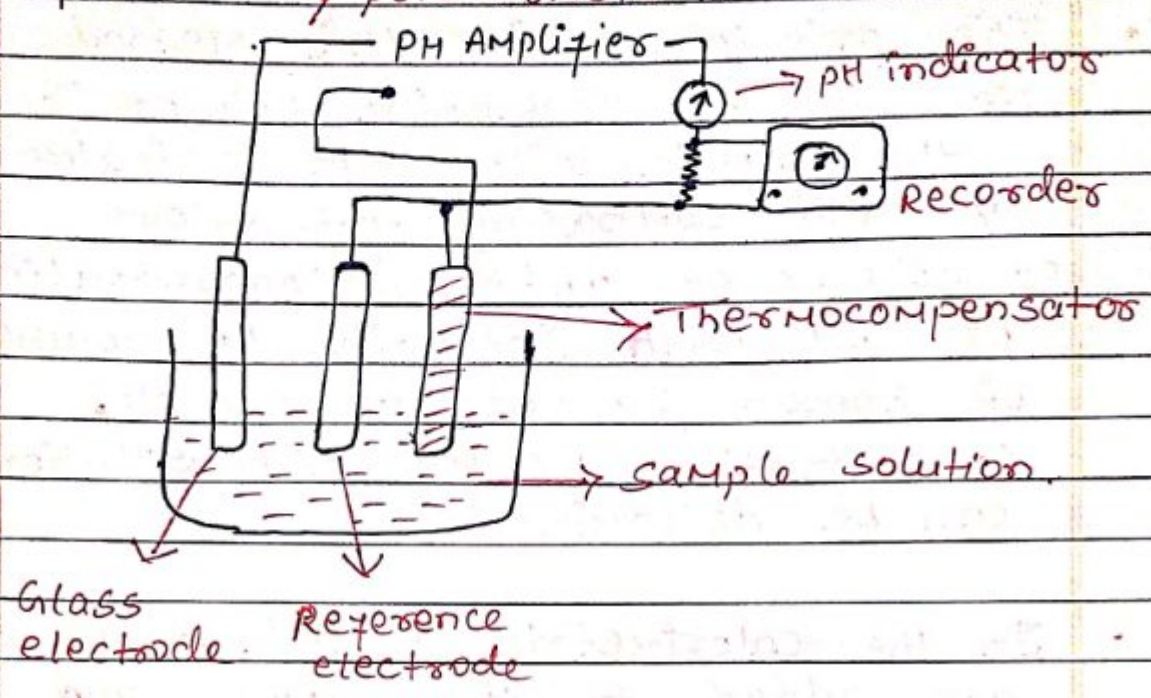 PH AMplifier
pH indicator
Recorder
ThermocoMpensator
saMple solution.
Glass
electrode
Reference
electrode